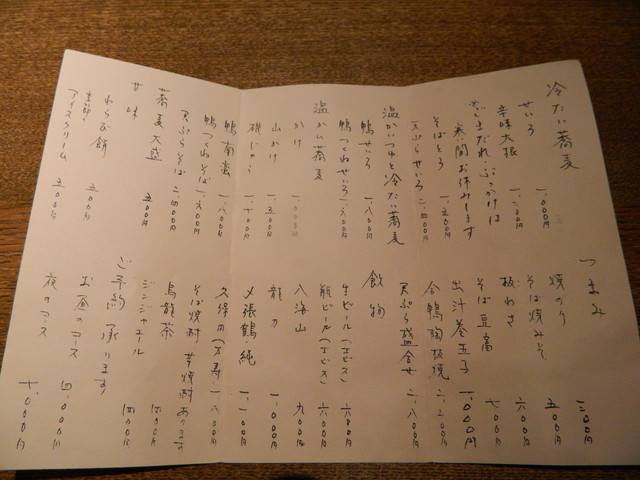 冷たい蕎麦
せいろ 一、〇〇〇円
辛味大根 一、二〇〇円
ぶっかけは
夜間お休みします
そばとろ 一、五〇〇円
天ぷらせいろ 二、四〇〇円
温かいつゆと冷たい蕎麦
鴨せいろ 一、八〇〇円
鴨つくねせいろ 一、六〇〇円
温かい蕎麦
かけ 一、〇〇〇円
山かけ 一、五〇〇円
磯じまん 一、七〇〇円
鴨南蛮 一、八〇〇円
鴨つくねそば 一、六〇〇円
天ぷらそば 二、四〇〇円
蕎麦大盛 五〇〇円
甘味
わらび餅 五〇〇円
季節のアイスクリーム 五〇〇円
つまみ
焼のり 三〇〇円
そば焼みそ 五〇〇円
板わさ 六〇〇円
そば豆富 七〇〇円
出汁巻玉子 一、〇〇〇円
合鴨陶板焼 二、二〇〇円
天ぷら盛合せ 二、八〇〇円
飲物
生ビール(エビス) 六〇〇円
瓶ビール(エビス) 六〇〇円
八海山 九〇〇円
龍力 一、〇〇〇円
〆張鶴 純 一、一〇〇円
久保田(万寿) 一、八〇〇円
そば焼酎 芋焼酎あります
烏龍茶 四〇〇円
ジンジャエール 四〇〇円
ご予約承ります
お昼のコース 四、〇〇〇円
夜のコース 七、〇〇〇円